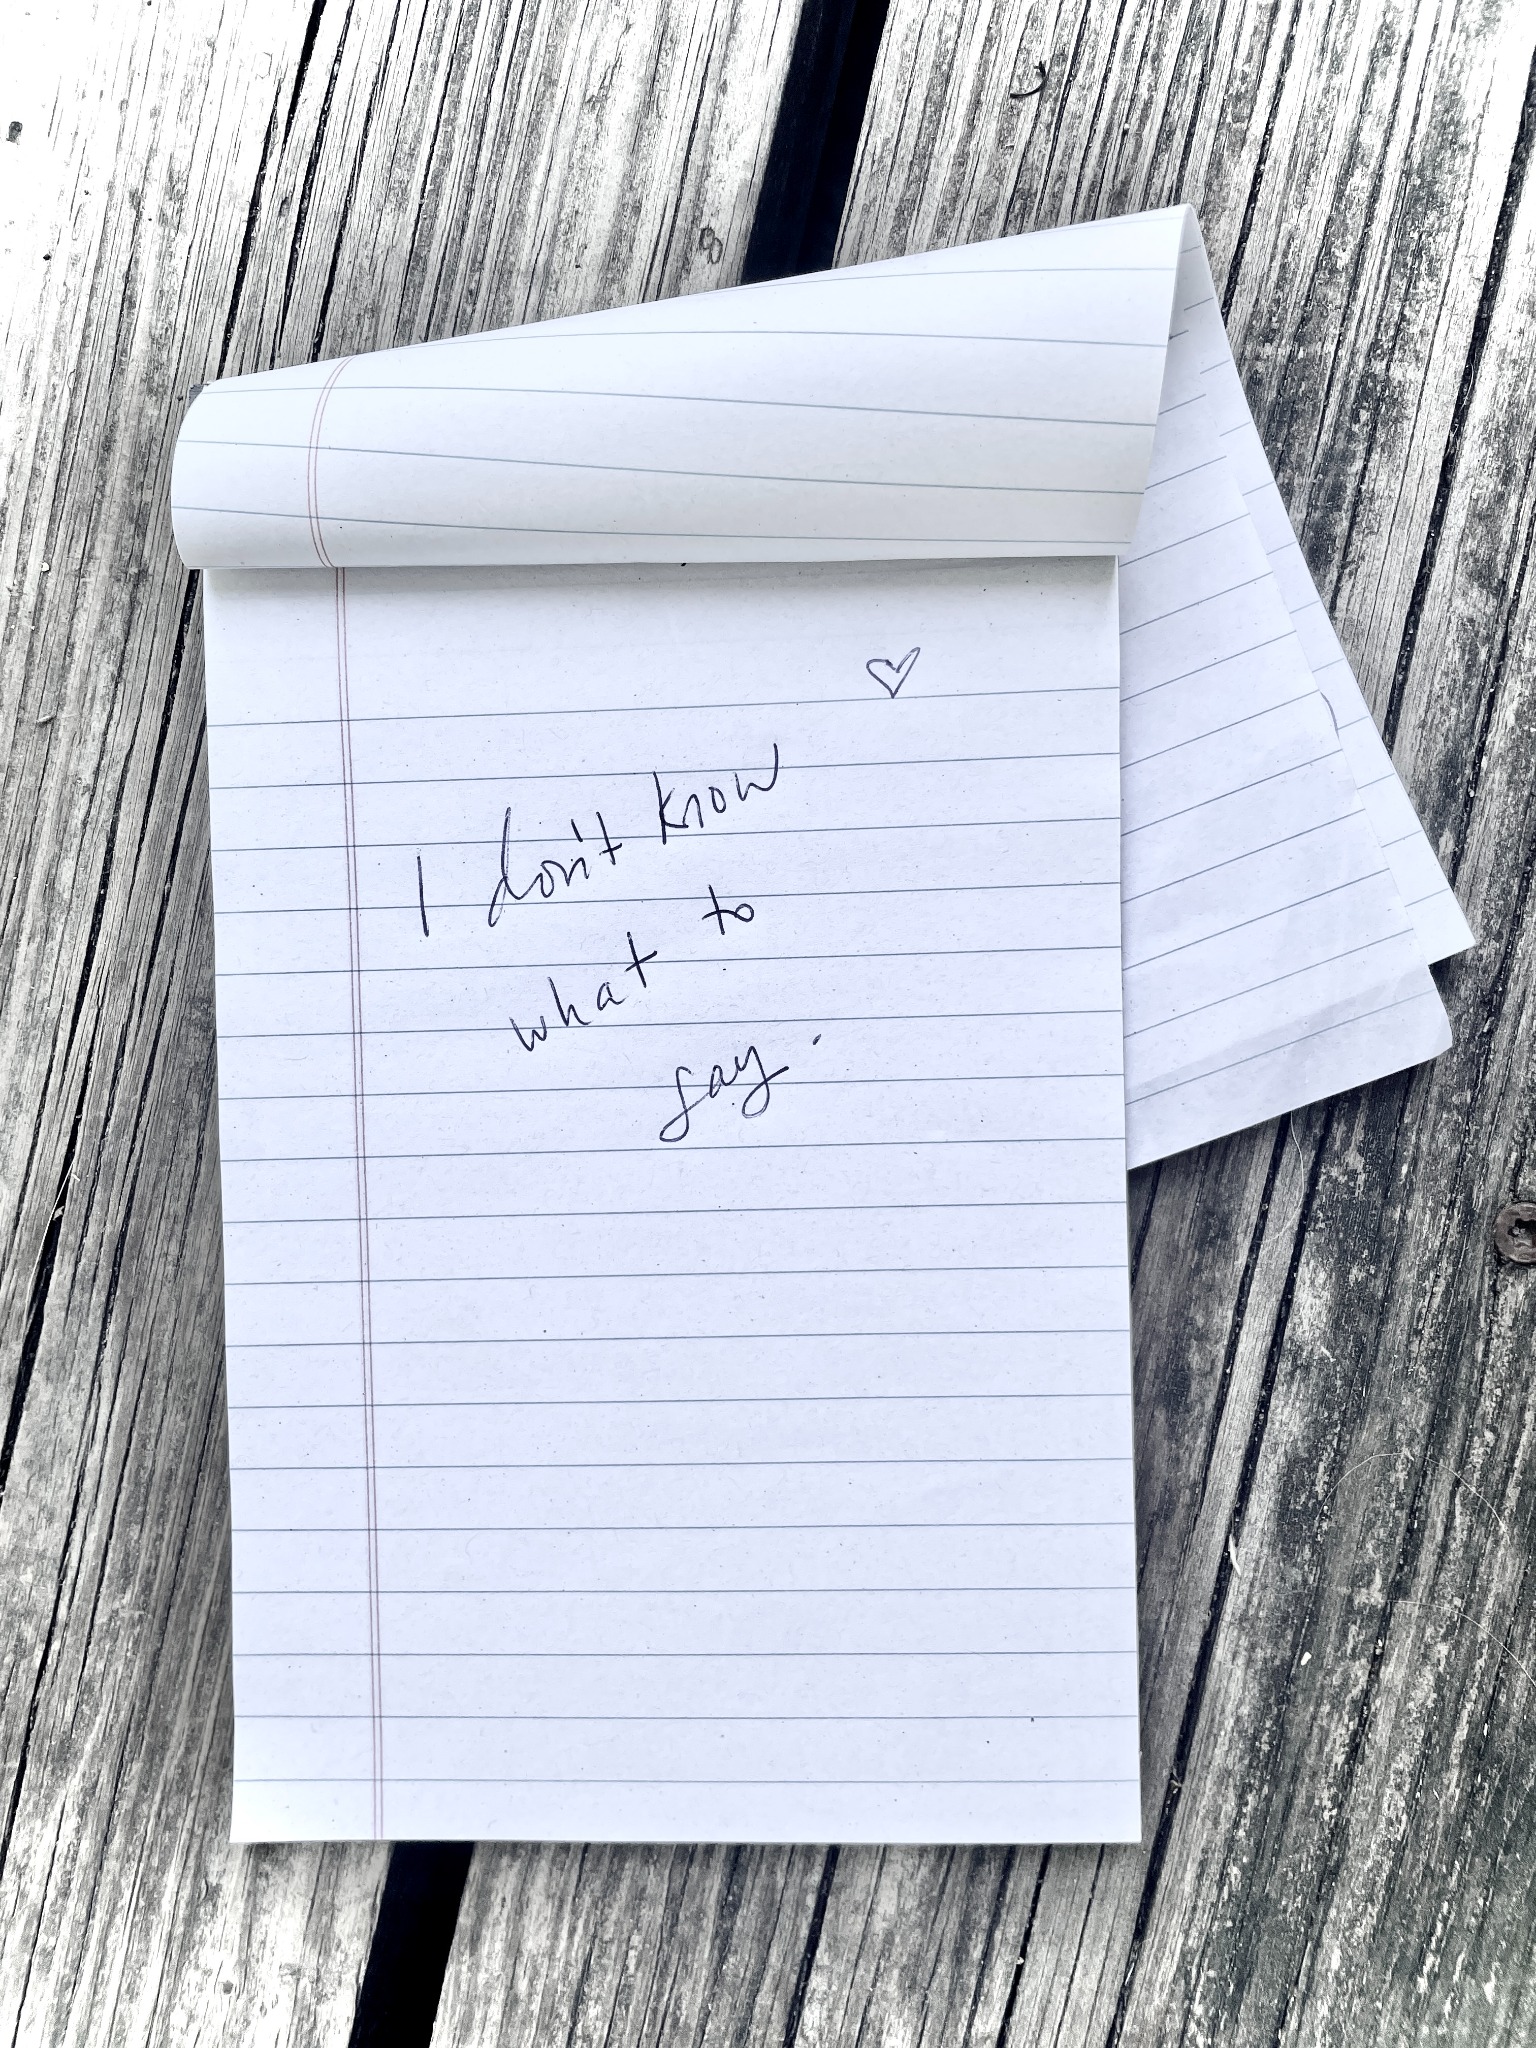 I don't know
what to
say.